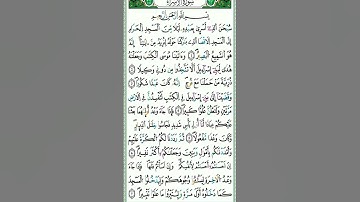 سُورَةُ الإِسْرَاءِ
بِسْمِ اللَّهِ الرَّحْمَٰنِ الرَّحِيمِ
سُبْحَٰنَ الَّذِي أَسْرَىٰ بِعَبْدِهِ لَيْلًا مِّنَ الْمَسْجِدِ الْحَرَامِ
إِلَى الْمَسْجِدِ الْأَقْصَا الَّذِي بَٰرَكْنَا حَوْلَهُ لِنُرِيَهُ مِنْ ءَايَٰتِنَا إِنَّهُ
هُوَ السَّمِيعُ الْبَصِيرُ ١ وَءَاتَيْنَا مُوسَى الْكِتَٰبَ وَجَعَلْنَٰهُ
هُدًى لِّبَنِي إِسْرَٰءِيلَ أَلَّا تَتَّخِذُوا مِن دُونِي وَكِيلًا ٢
ذُرِّيَّةَ مَنْ حَمَلْنَا مَعَ نُوحٍ إِنَّهُ كَانَ عَبْدًا شَكُورًا ٣
وَقَضَيْنَا إِلَىٰ بَنِي إِسْرَٰءِيلَ فِي الْكِتَٰبِ لَتُفْسِدُنَّ فِي الْأَرْضِ
مَرَّتَيْنِ وَلَتَعْلُنَّ عُلُوًّا كَبِيرًا ٤ فَإِذَا جَاءَ وَعْدُ أُولَىٰهُمَا بَعَثْنَا
عَلَيْكُمْ عِبَادًا لَّنَا أُولِي بَأْسٍ شَدِيدٍ فَجَاسُوا خِلَٰلَ الدِّيَارِ
وَكَانَ وَعْدًا مَّفْعُولًا ٥ ثُمَّ رَدَدْنَا لَكُمُ الْكَرَّةَ عَلَيْهِمْ
وَأَمْدَدْنَٰكُم بِأَمْوَٰلٍ وَبَنِينَ وَجَعَلْنَٰكُمْ أَكْثَرَ نَفِيرًا ٦
إِنْ أَحْسَنتُمْ أَحْسَنتُمْ لِأَنفُسِكُمْ وَإِنْ أَسَأْتُمْ فَلَهَا فَإِذَا جَاءَ
وَعْدُ الْءَاخِرَةِ لِيَسُءُوا وُجُوهَكُمْ وَلِيَدْخُلُوا الْمَسْجِدَ
كَمَا دَخَلُوهُ أَوَّلَ مَرَّةٍ وَلِيُتَبِّرُوا مَا عَلَوْا تَتْبِيرًا ٧